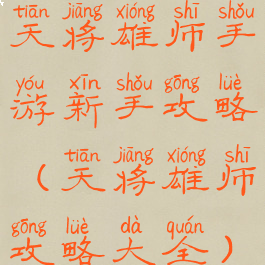 tiān jiāng xióng shī shǒu
天将雄师手
yóu xīn shǒu gōng lüè
游新手攻略
tiān jiāng xióng shī
（天将雄师
gōng lüè dà quán
攻略大全）